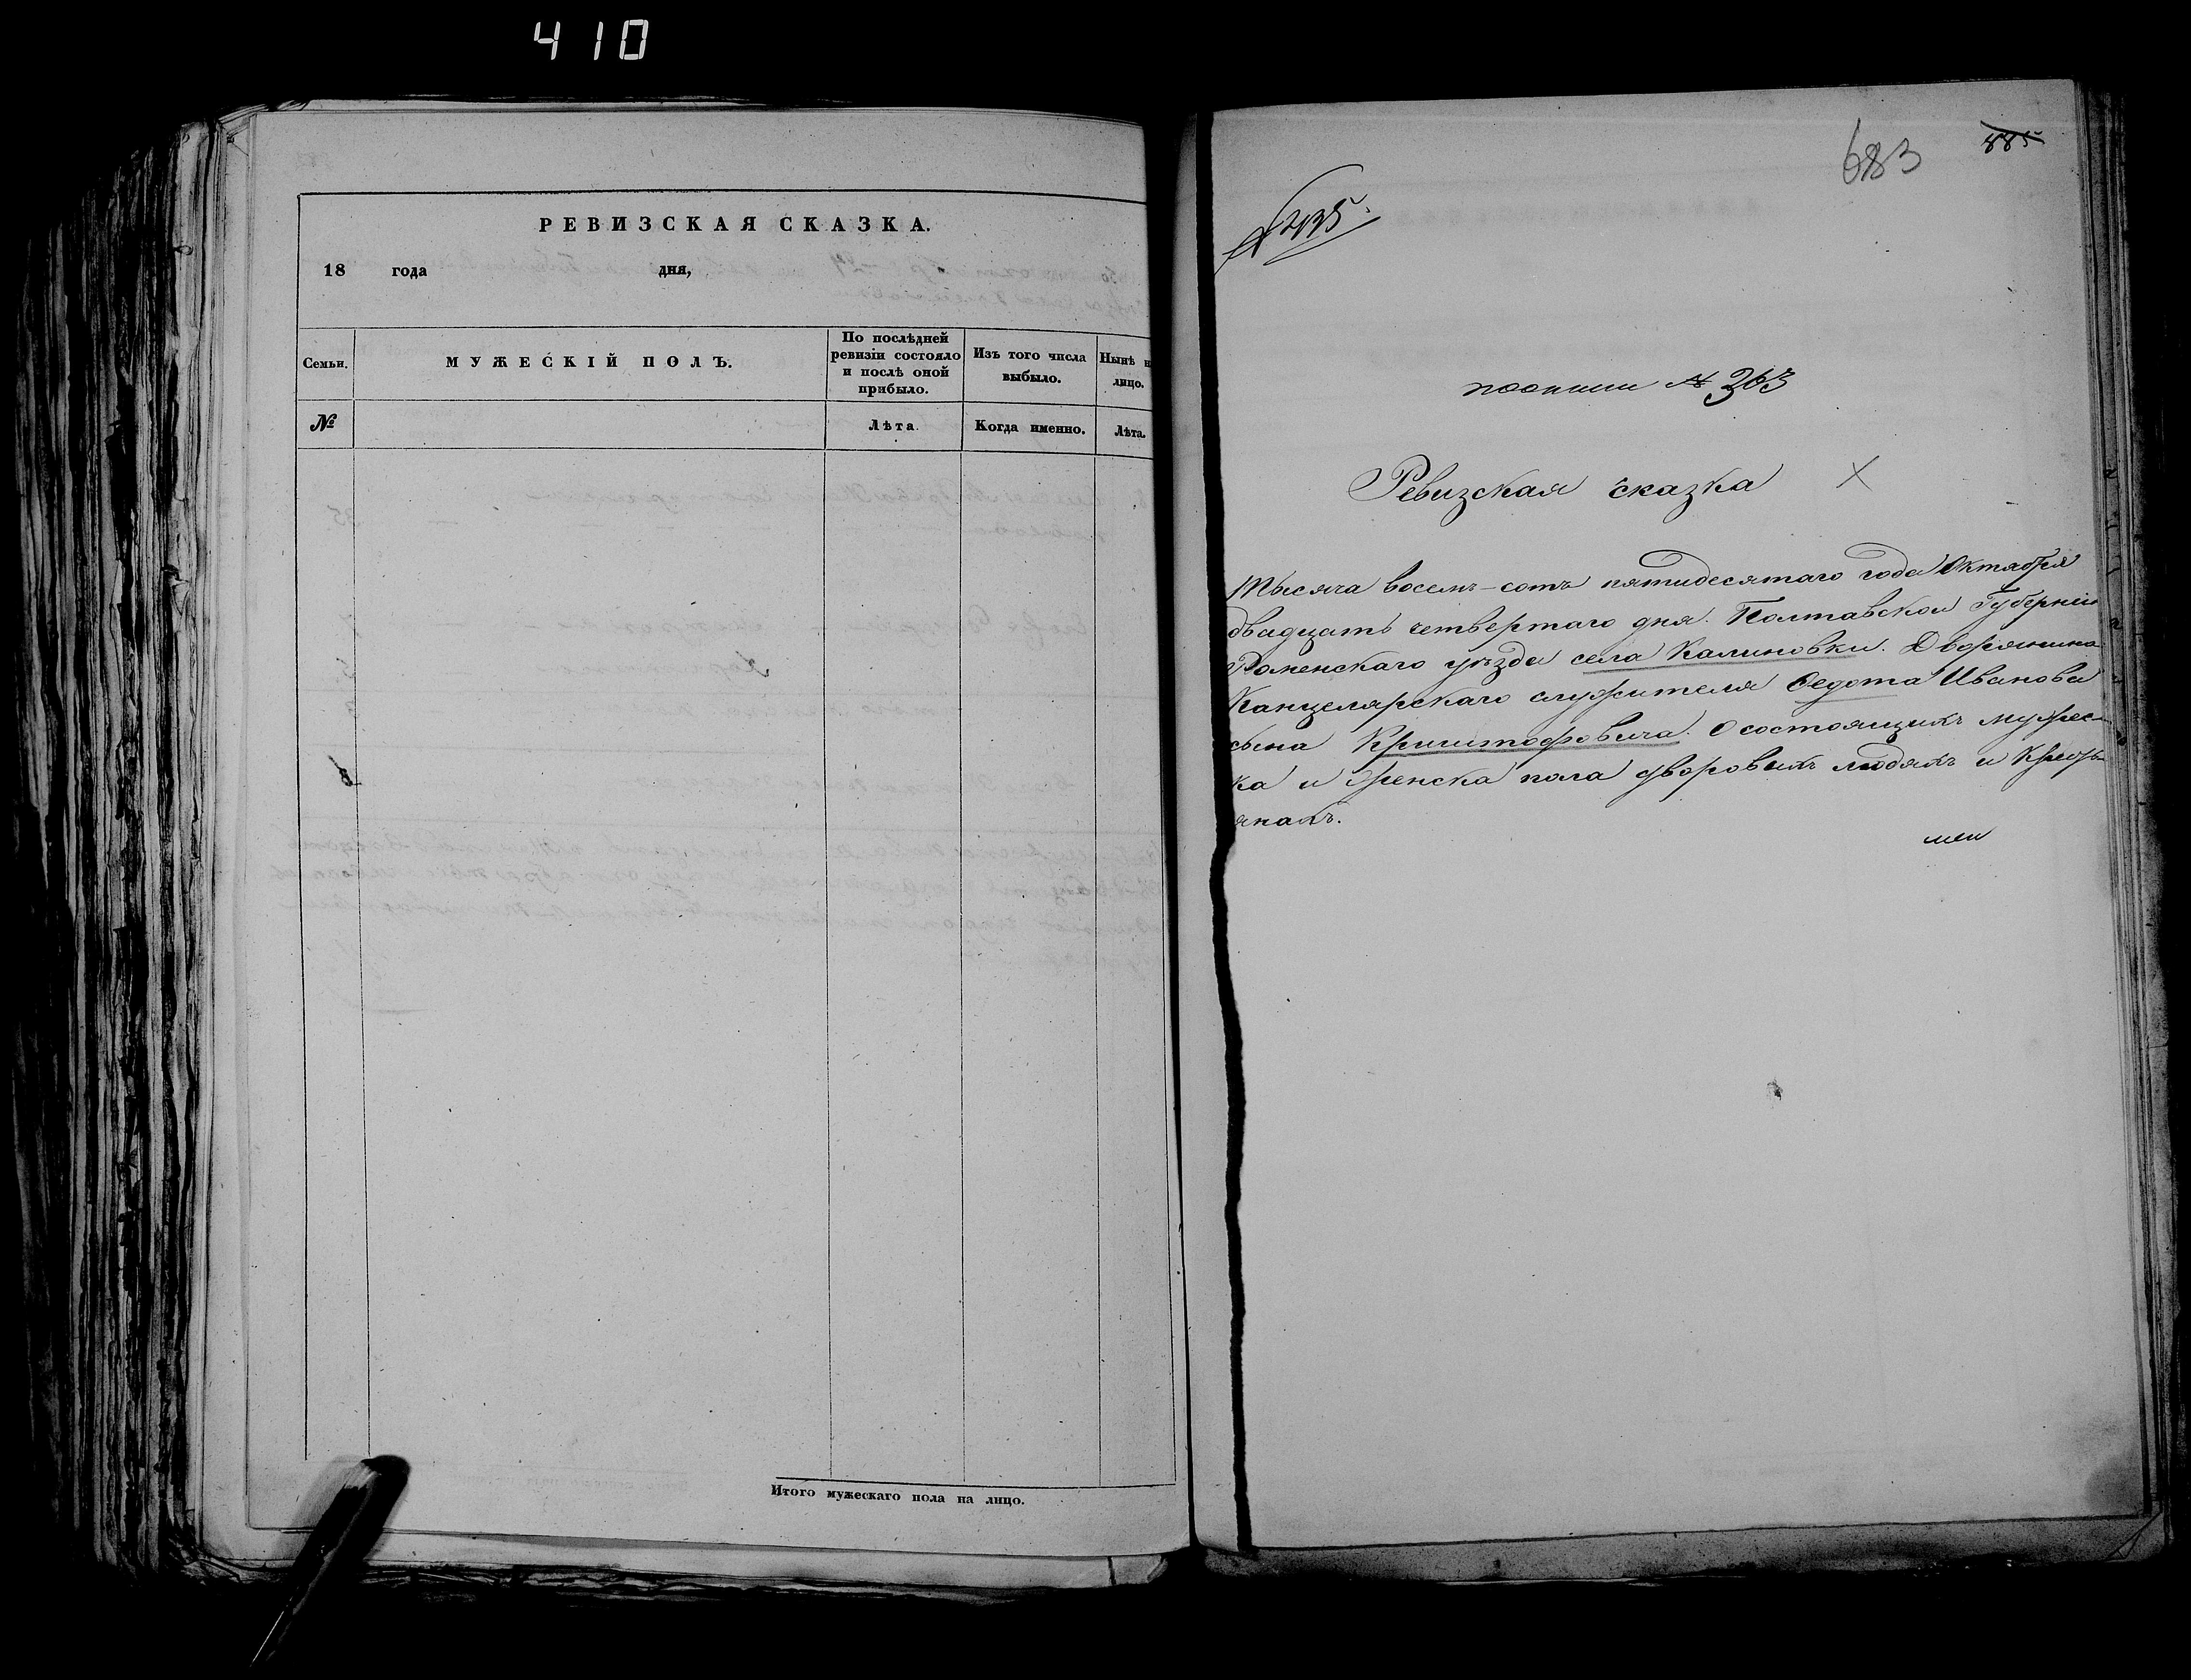 410
РЕВИЗСКАЯ СКАЗКА.
18 года дня,
Семьи.
МУЖЕСКІЙ ПОЛЪ.
По послѣдней
ревизіи состояло
и послѣ оной
прибыло.
Изъ того числа
выбыло.
Нынѣ н
лицо.
№
Лѣта.
Когда именно.
Лѣта.
Итого мужескаго пола на лицо.
683
885
№ 363
Ревизская сказка
Тысяча восемь-сотъ пятидесятаго года Октября
двадцать четвертаго дня. Полтавской Губерніи
Роменскаго уѣзда села Калиновки. Дворянина
Канцелярскаго служителя Федота Иванова
сына Криштофовича. О состоящихъ мужес-
ка и женска пола дворовыхъ людяхъ и Кресть-
янахъ.